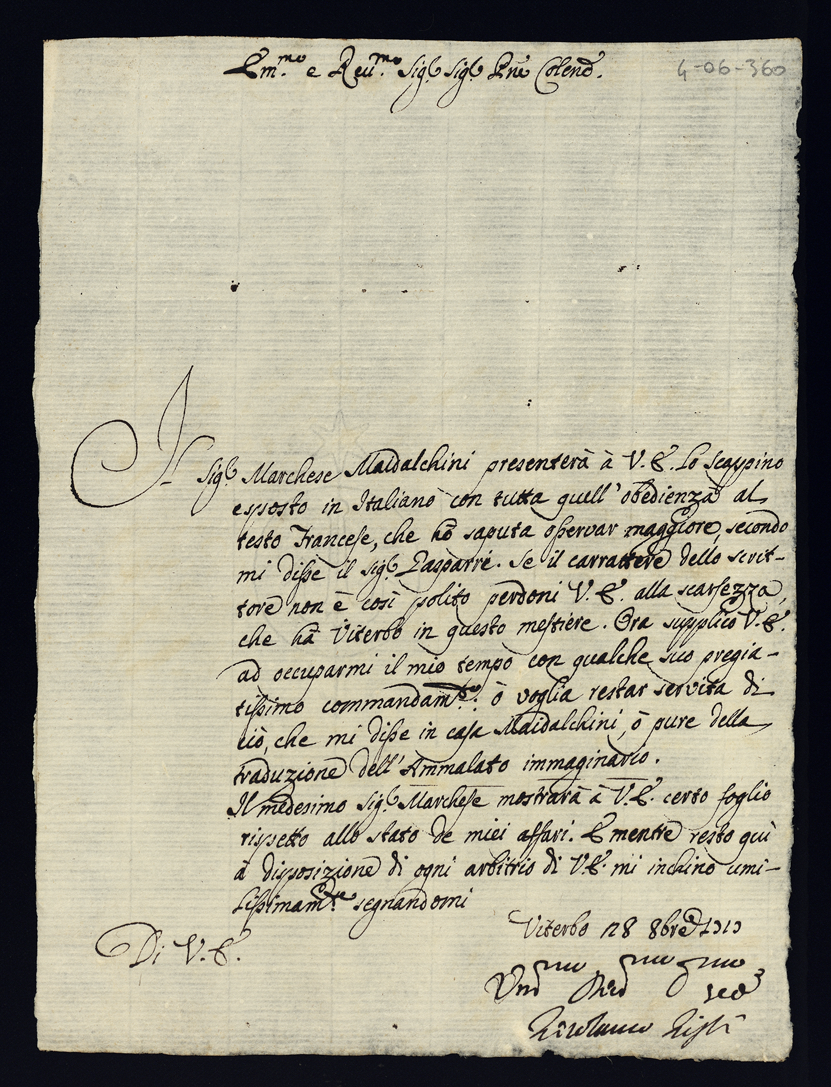 Em.mo e Reu.mo Sig.r Sig.r Prñe Colend.
4-06-360
Il Sig.r Marchese Maidalchini presenterà à V.E. lo Scappino
esposto in Italiano con tutta quell'obedienza al
testo Francese, che hò saputa osservar maggiore, secondo
mi disse il sig.r Gasparri. Se il carrattere dello scrit-
tore non è così polito perdoni V.E. alla scarsezza,
che hà Viterbo in questo mestiere. Ora supplico V.E.
ad occuparmi il mio tempo con qualche suo pregia-
tissimo commandam.to: ò voglia restar servita di
ciò, che mi disse in casa Maidalchini, ò pure della
traduzione dell'Ammalato immaginario.
Il medesimo Sig.r Marchese mostrarà à V.E. certo foglio
rispetto allo stato de miei affari. E mentre resto quì
à disposizione di ogni arbitrio di V.E. mi inchino umi-
lissimam.te segnandomi
Viterbo 28 8bre
Di V.E.